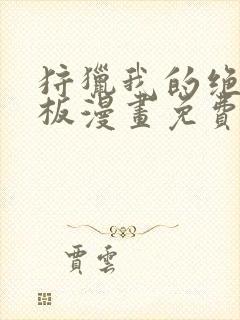 狩獵我的绝
板漫畫免費
賈雲